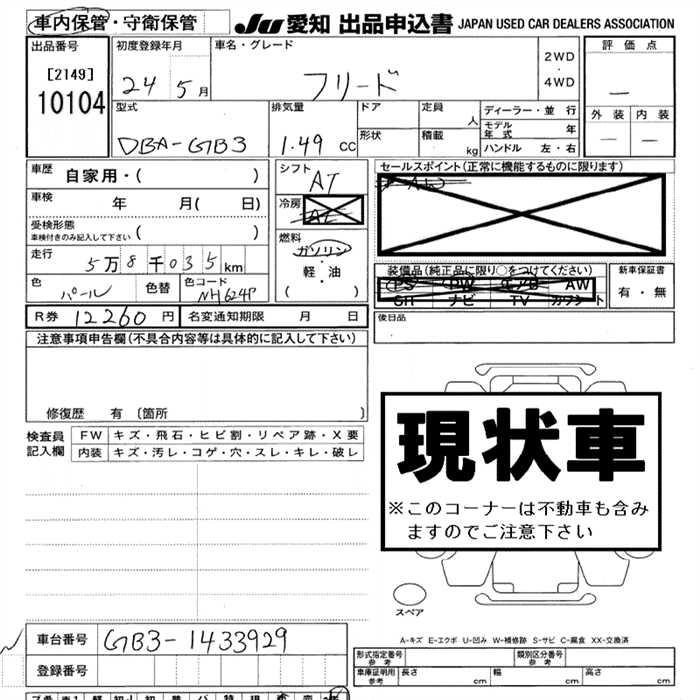 車内保管・守衛保管
JU 愛知 出品申込書 JAPAN USED CAR DEALERS ASSOCIATION
出品番号 初度登録年月 車名・グレード 評価点
[2149]
10104
24 5月 フリード 2WD・4WD
外装 内装
型式 排気量 ドア 定員 人 ディーラー・並行
DBA-GB3 1.49 cc 形状 積載 kg モデル年式 年
ハンドル 左・右
車歴 自家用・( ) シフト AT セールスポイント(正常に機能するものに限ります)
車検 年 月( 日) 冷房 AC
受検形態 車検付きのみ記入して下さい ( )
燃料 ガソリン・軽・油 ( )
走行 5万8千035km
装備品(純正品に限り○をつけてください) 新車保証書
PS PW エアB AW
ナビ TV 有・無
色 パール 色替 色コード NH624P
R券 12260円 名変通知期限 月 日 後日品
注意事項申告欄(不具合内容等は具体的に記入して下さい)
修復歴 有〔箇所
検査員記入欄 FW キズ・飛石・ヒビ割・リペア跡・X要
内装 キズ・汚レ・コゲ・穴・スレ・キレ・破レ
現状車
※このコーナーは不動車も含み
ますのでご注意下さい
スペア
A-キズ E-エクボ U-凹み W-補修跡 S-サビ C-腐食 XX-交換済
車台番号 GB3-1433929
登録番号
形式指定番号 参考 類別区分番号 参考
車庫証明用 参考 長さ cm 幅 cm 高さ cm